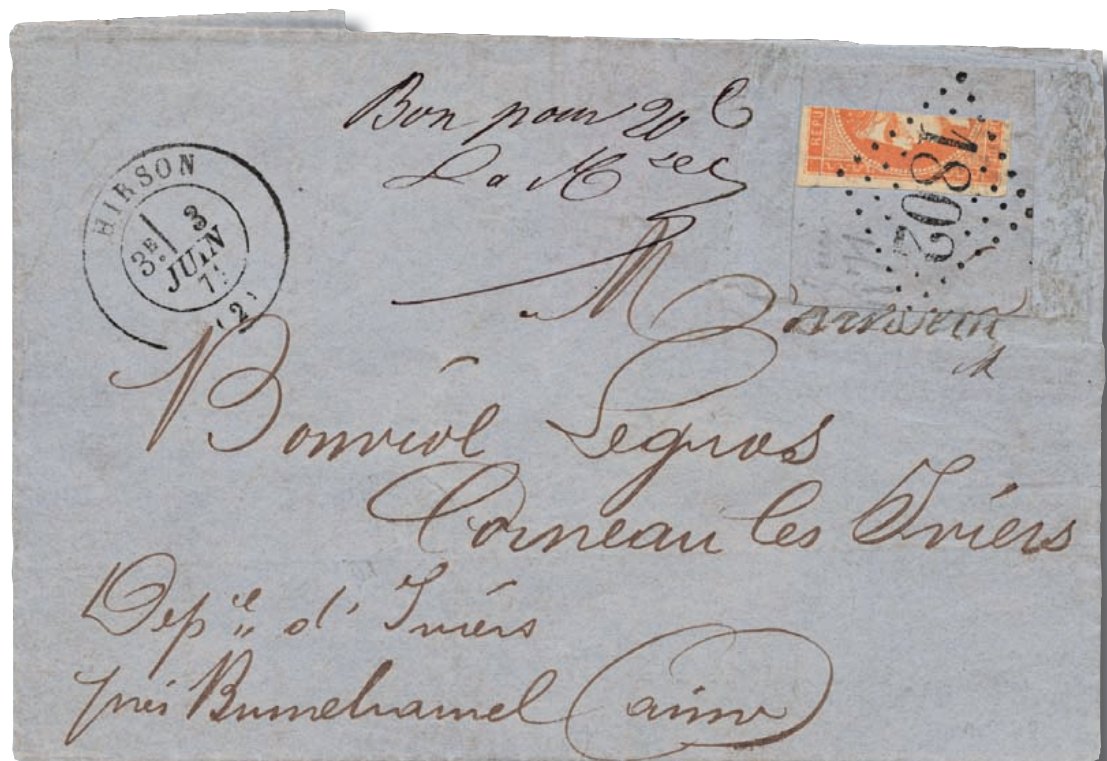 Bon pour 20 C
La R
HIRSON
3E
3
JUIN
71
(2)
RÉPU
1802
M
Bonviol Legros
Corneau les Iviers
Dépce d'Iviers
près Brunehamel (aisne)